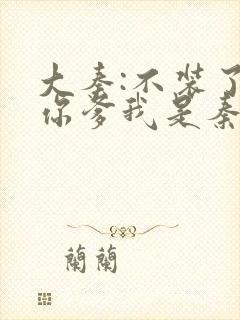 大秦:不装了
你爹我是秦
蘭蘭